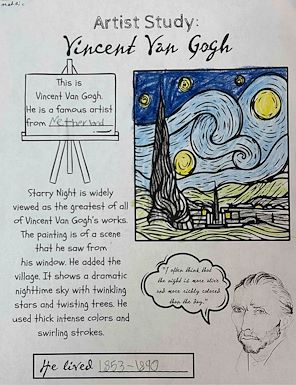 Artist Study:
Vincent Van Gogh
This is
Vincent Van Gogh.
He is a famous artist
from Netherland
Starry Night is widely
viewed as the greatest of all
of Vincent Van Gogh's works.
The painting is of a scene
that he saw from
his window. He added the
village. It shows a dramatic
nighttime sky with twinkling
stars and twisting trees. He
used thick intense colors and
swirling strokes.
"I often think that
the night is more alive
and more richly colored
than the day."
He lived 1853-1890